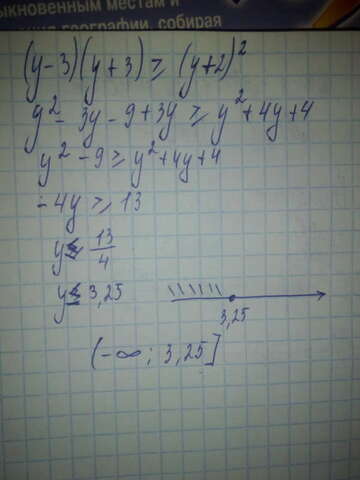 ыкновенным местам и
географии, собирая
(y-3)(y+3) ≥ (y+2)²
y² - 3y - 9 + 3y ≥ y² + 4y + 4
y² - 9 ≥ y² + 4y + 4
- 4y ≥ 13
y ≤ 13/4
y ≤ 3,25
3,25
(-∞; 3,25]